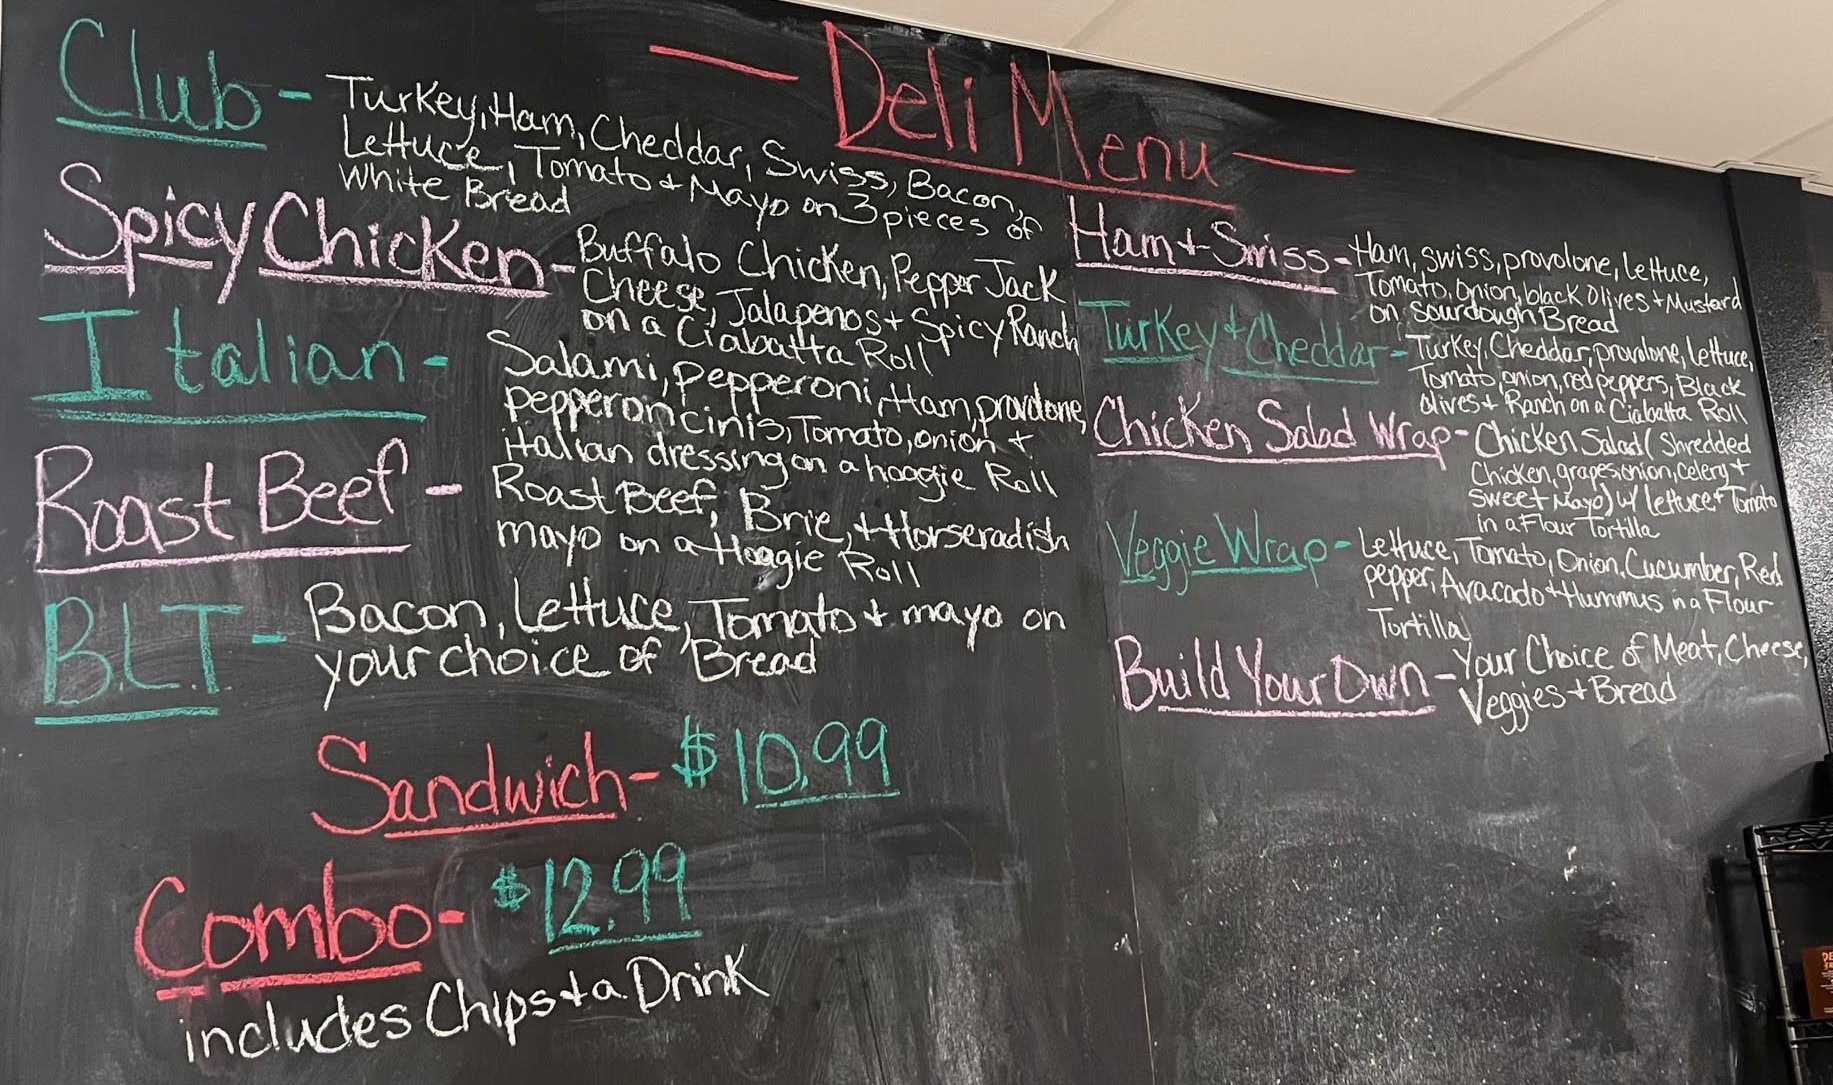 — Deli Menu —
Club - Turkey, Ham, Cheddar, Swiss, Bacon,
Lettuce, Tomato + Mayo on 3 pieces of
White Bread
Spicy Chicken - Buffalo Chicken, Pepper Jack
Cheese, Jalapenos + Spicy Ranch
on a Ciabatta Roll
Italian - Salami, pepperoni, Ham, provolone,
pepperoncinis, Tomato, onion +
italian dressing on a hoagie Roll
Roast Beef - Roast Beef, Brie, + Horseradish
mayo on a Hoagie Roll
B.L.T - Bacon, Lettuce, Tomato + mayo on
your choice of Bread
Sandwich - $10.99
Combo - $12.99
includes Chips + a Drink
Ham + Swiss - Ham, swiss, provolone, Lettuce,
Tomato, onion, black Olives + Mustard
on sourdough Bread
Turkey + Cheddar - Turkey, Cheddar, provolone, lettuce,
Tomato, onion, red peppers, Black
olives + Ranch on a Ciabatta Roll
Chicken Salad Wrap - Chicken Salad (Shredded
Chicken, grapes, onion, celery +
sweet Mayo) w/ lettuce + Tomato
in a Flour Tortilla
Veggie Wrap - Lettuce, Tomato, Onion, Cucumber, Red
pepper, Avacado + Hummus in a Flour
Tortilla
Build Your Own - Your Choice of Meat, Cheese,
Veggies + Bread